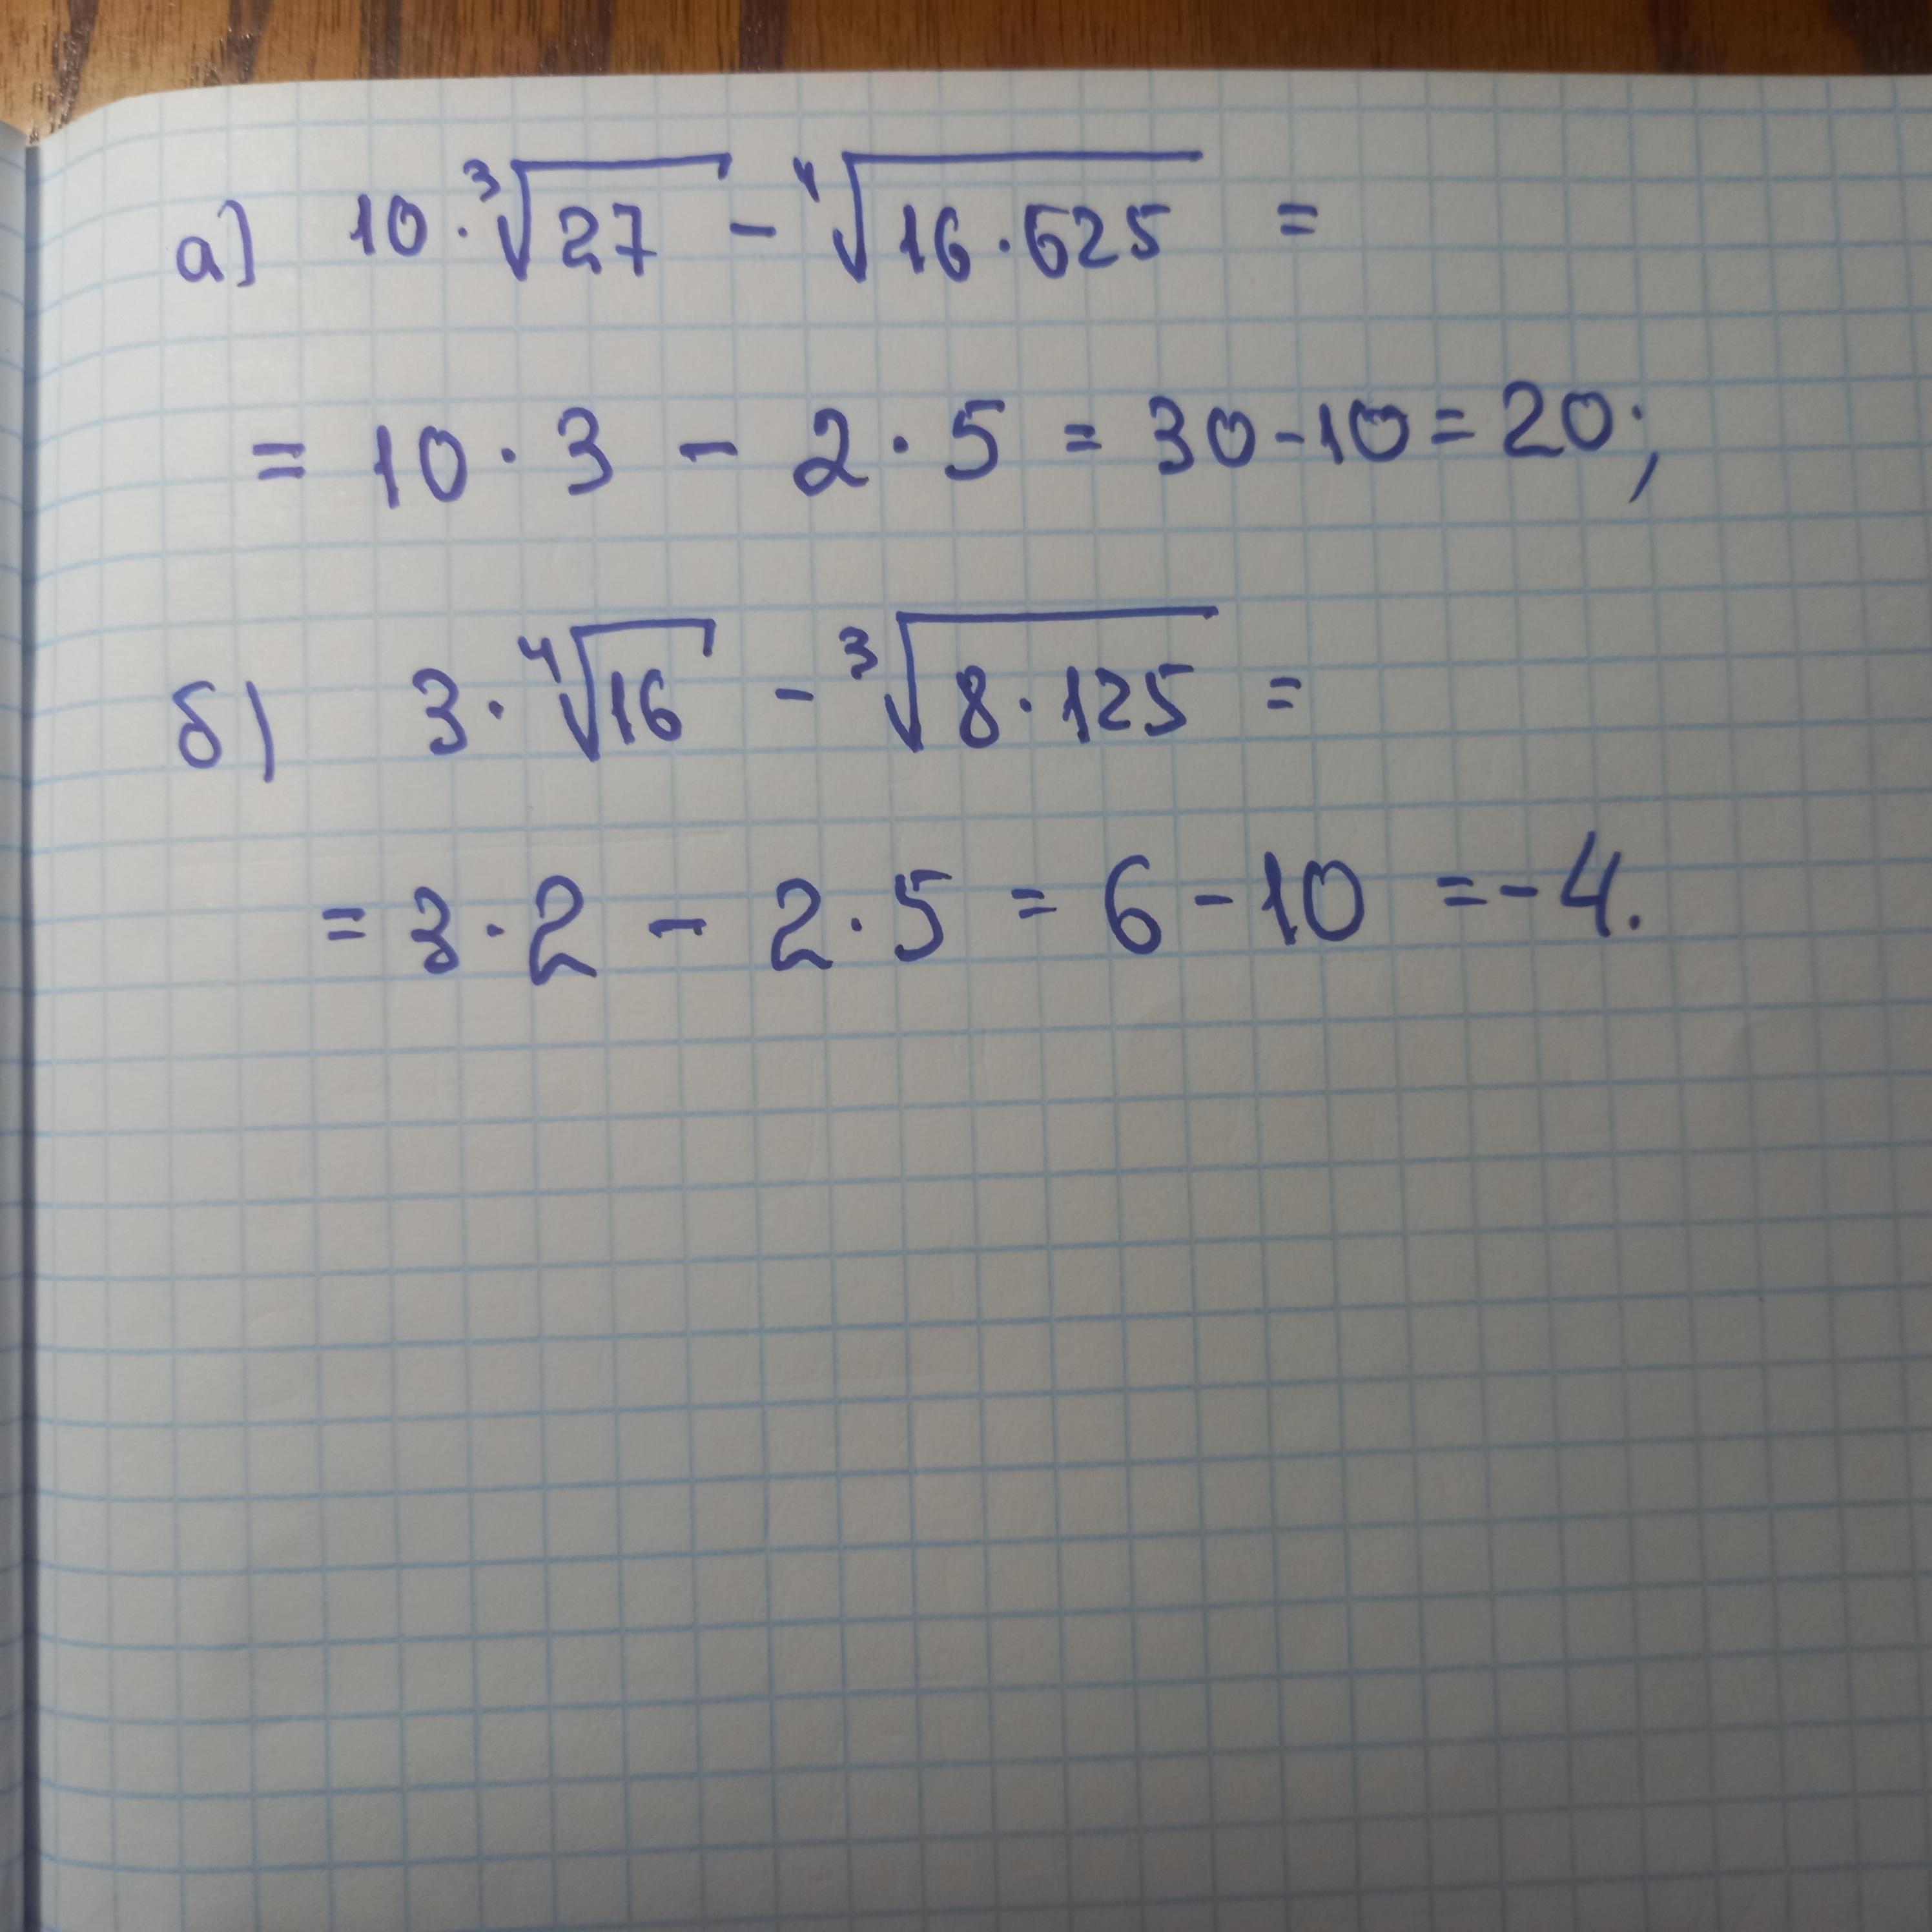 а) 10 · ³√27 - ⁴√16 · 625 =
= 10 · 3 - 2 · 5 = 30 - 10 = 20;
б) 3 · ⁴√16 - ³√8 · 125 =
= 3 · 2 - 2 · 5 = 6 - 10 = -4.